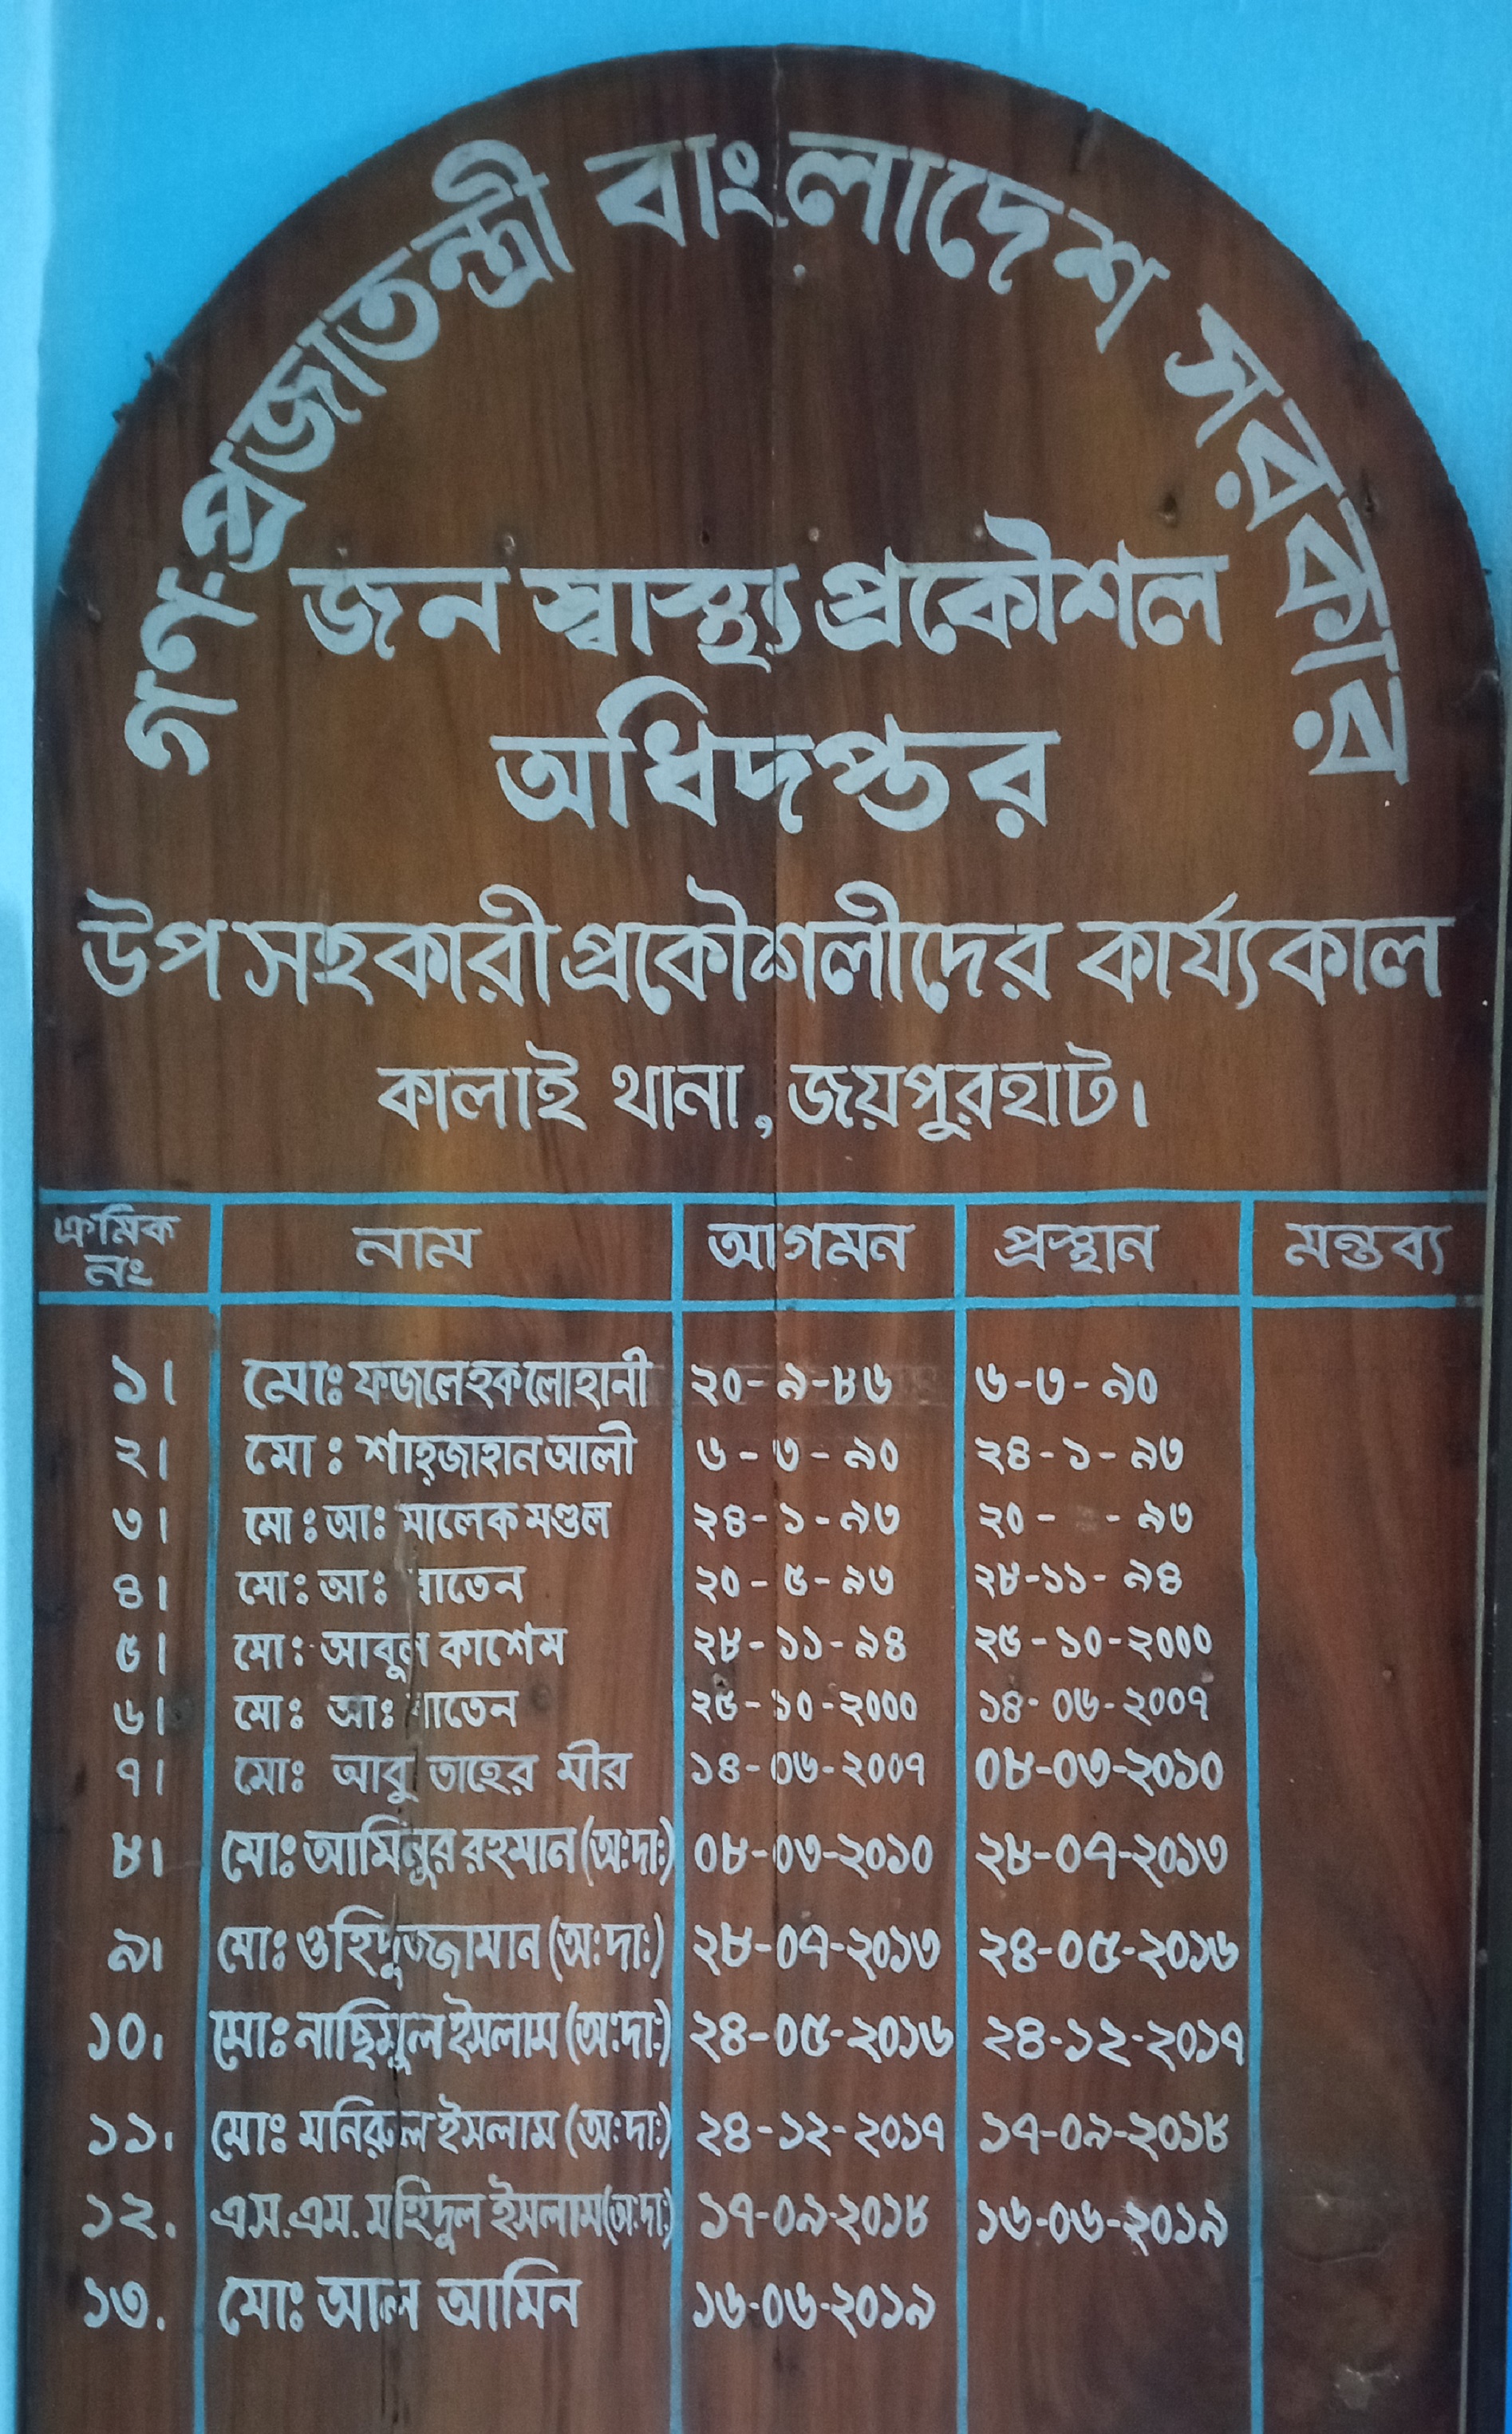 গণ-প্রজাতন্ত্রী বাংলাদেশ সরকার
জন স্বাস্থ্য প্রকৌশল
অধিদপ্তর
উপ সহকারী প্রকৌশলীদের কার্য্যকাল
কালাই থানা, জয়পুরহাট।
ক্রমিক নং নাম আগমন প্রস্থান মন্তব্য
১। মোঃ ফজলেহক লোহানী ২০-৯-৮৬ ৬-৩-৯০
২। মোঃ শাহ্জাহান আলী ৬-৩-৯০ ২৪-১-৯৩
৩। মোঃ আঃ মালেক মণ্ডল ২৪-১-৯৩ ২০- -৯৩
৪। মোঃ আঃ ২০-৫-৯৩ ২৮-১১-৯৪
৫। মোঃ আবুল কাশেম ২৮-১১-৯৪ ২৫-১০-২০০০
৬। মোঃ আঃ ২৫-১০-২০০০ ১৪-০৬-২০০৭
৭। মোঃ আবু তাহের মীর ১৪-০৬-২০০৭ ০৮-০৩-২০১০
৮। মোঃ আমিনুর রহমান (অ:দা:) ০৮-০৩-২০১০ ২৮-০৭-২০১৩
৯। মোঃ ওহিদুজ্জামান (অ:দা:) ২৮-০৭-২০১৩ ২৪-০৫-২০১৬
১০। মোঃ নাছিমুল ইসলাম (অ:দা:) ২৪-০৫-২০১৬ ২৪-১২-২০১৭
১১। মোঃ মনিরুল ইসলাম (অ:দা:) ২৪-১২-২০১৭ ১৭-০৯-২০১৮
১২. এস.এম. মহিদুল ইসলাম (অ:দা:) ১৭-০৯-২০১৮ ১৬-০৬-২০১৯
১৩. মোঃ আল আমিন ১৬-০৬-২০১৯